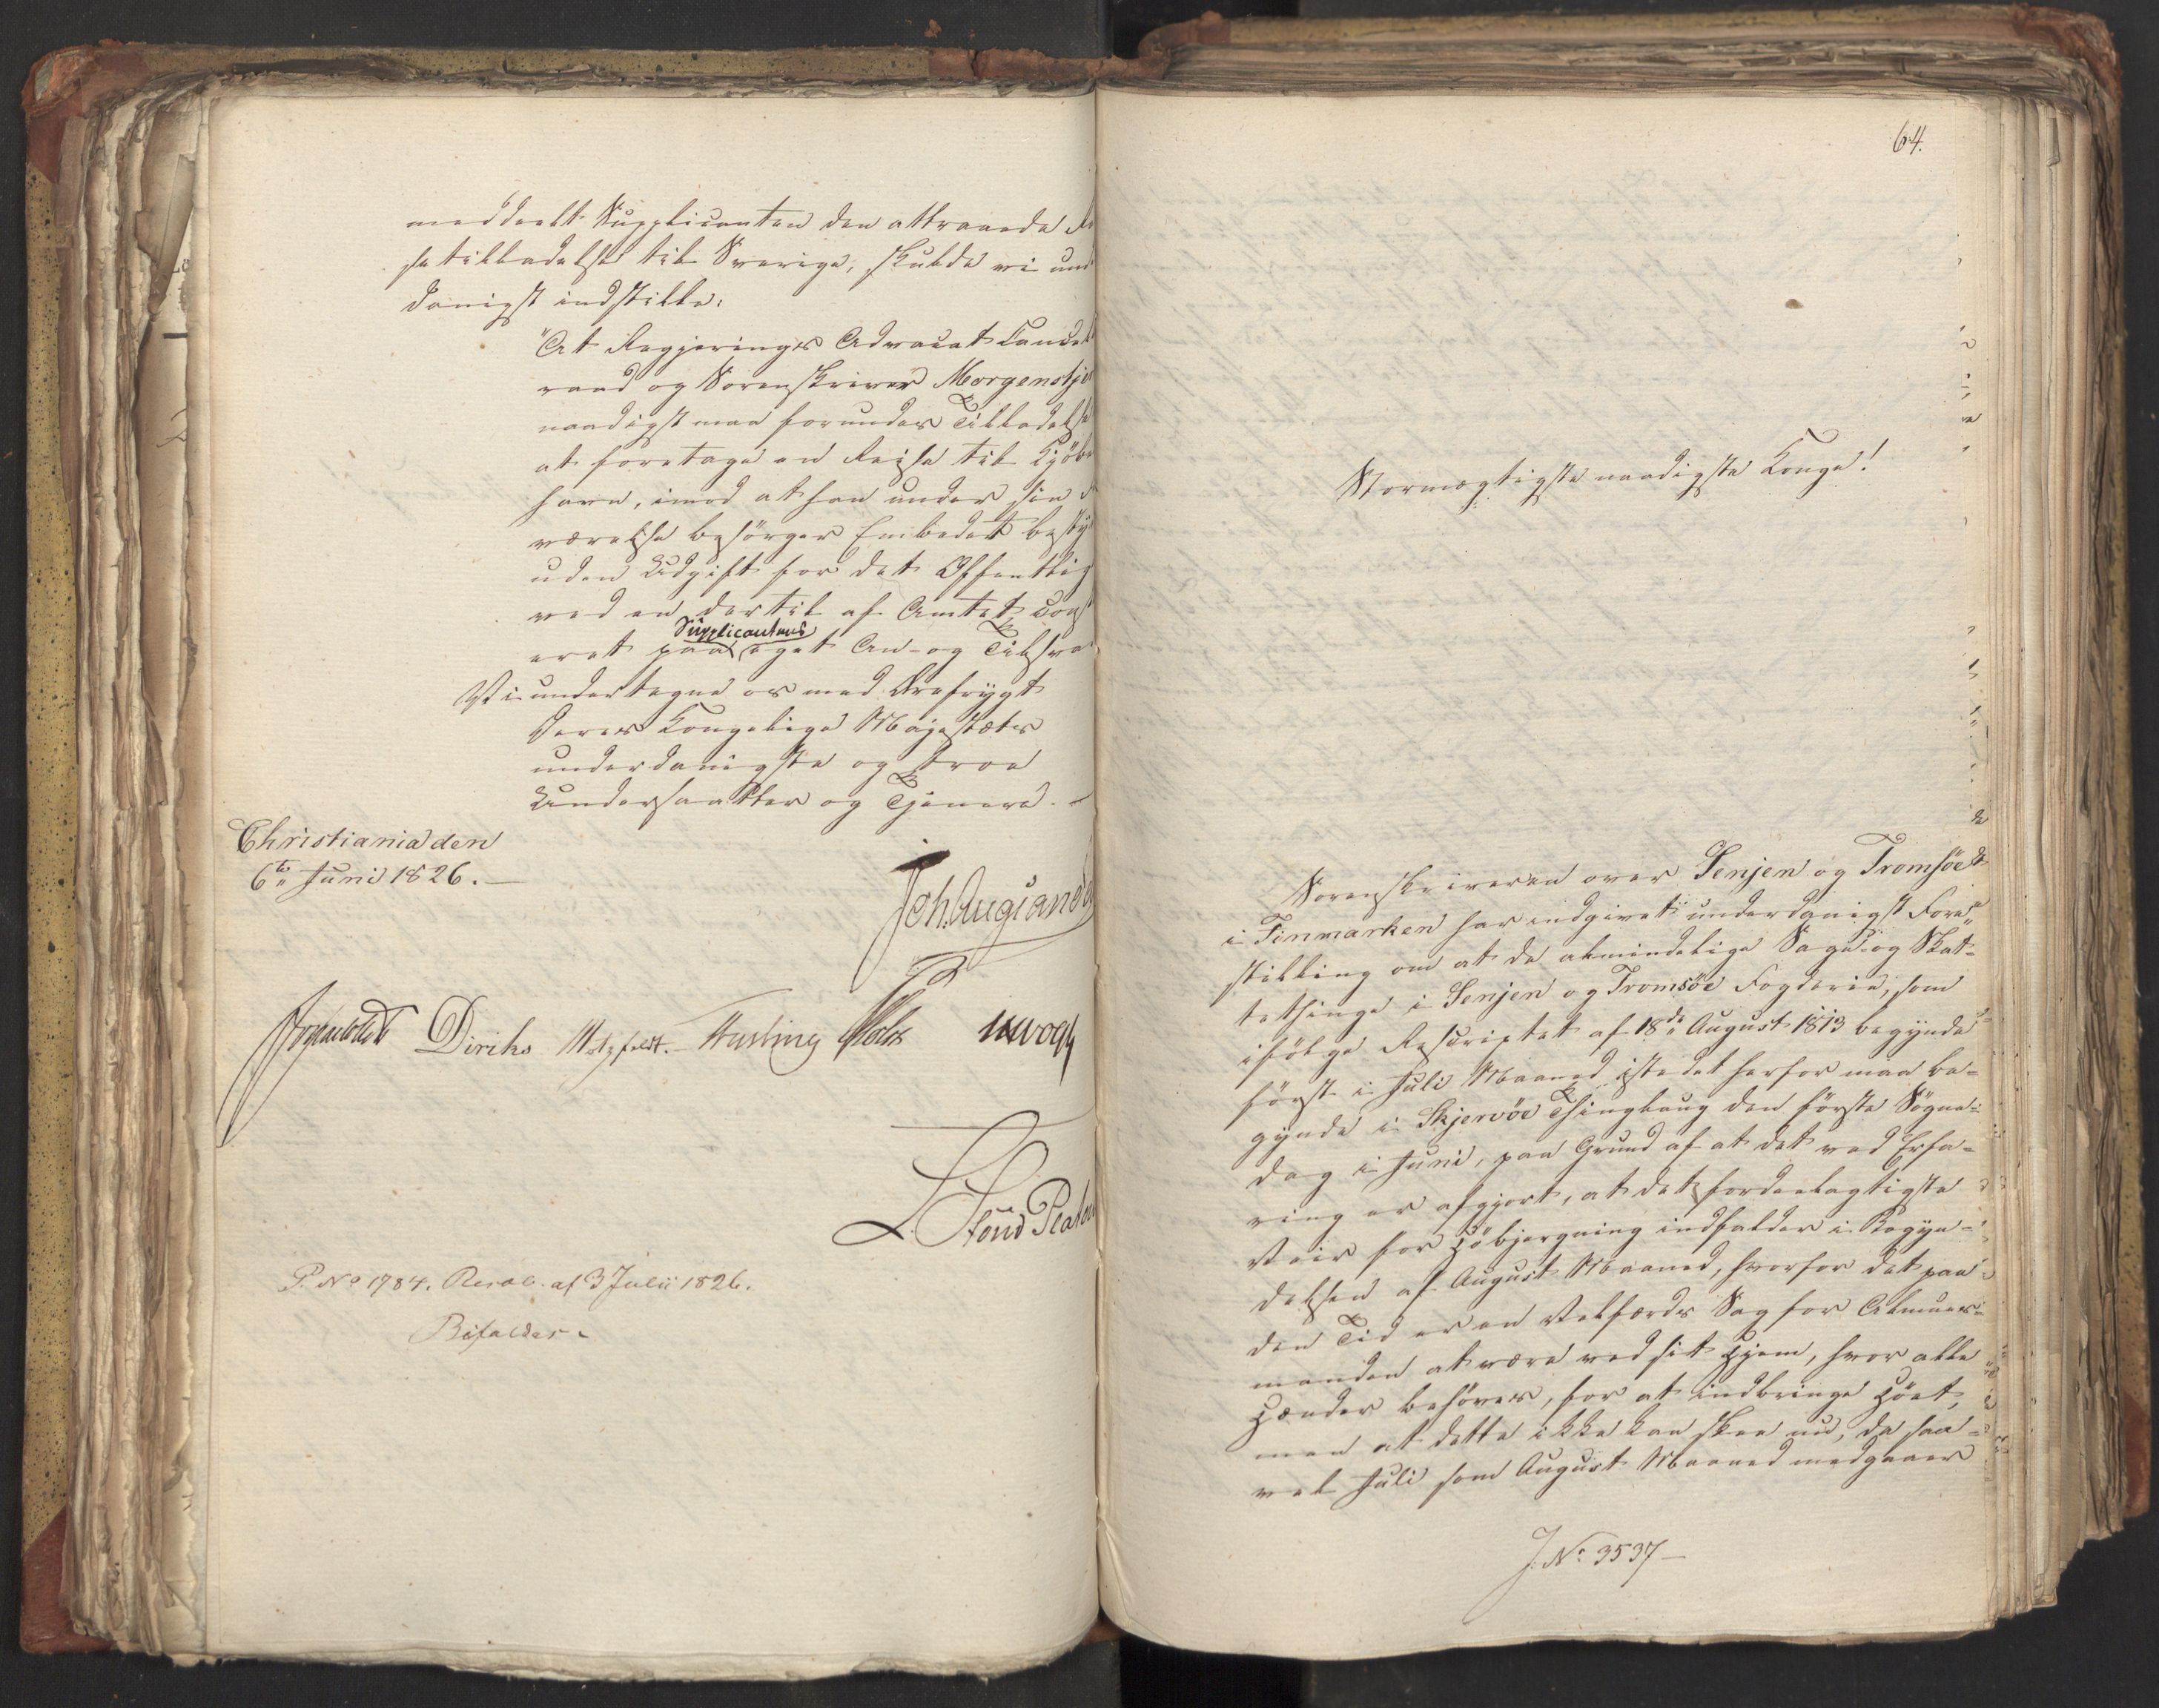 meddeelt Supplicanten den attraaede Re
setilladelse til Sverige, skulde vi und
danigst indstille:
"At Regjerings Advocat Cancel
raad og Sorenskriver Morgenstje
naadigst maa forundes Tilladelse
at foretage en Reise til Kjöbe
havn, imod at han under sin F
værelse besörger Embedet besty
uden Udgift for det Offentlig
ved en dertil af Amtet const
eret paa Supplicantens eget An- og Tilsva
Vi undertegne os med Ærefrygt
Deres Kongelige Majestæts
underdanigste og troe
Undersaatter og Tjenere. -
Christiania den
6te Juni 1826. -
Joh. Aug. Sande
Diriks Motzfeldt. Fasting Holst JHVogt
L. Stoud Platou
P. No 1784. Resol. af 3 Julii 1826.
Bifaldes.
64.
Stormægtigste naadigste Konge!
Sorenskriveren over Senjen og Tromsöe
i Finmarken har indgivet underdanigst Fore-
stilling om at de almindelige Sage- og Skat-
tethinge i Senjen og Tromsöe Fogderie, som
ifölge Rescriptet af 18de August 1813 begynde
först i Juli Maaned istedet herfor maa be-
gynde i Skjervöe Thinglaug den förste Sögne-
dag i Juni, paa Grund af at det ved Erfa-
ring er afgjort, at det fordeelagtigste
Veir for Höbjergning indfalder i Begyn-
delsen af August Maaned, hvorfor det paa
den Tid er en Velfærds Sag for Almues-
manden at være ved sit Hjem, hvor alle
Hænder behöves, for at indbringe Höet,
men at dette ikke kan skee nu, da saa-
vel Juli som August Maaned medgaaer
J. No 3537 -